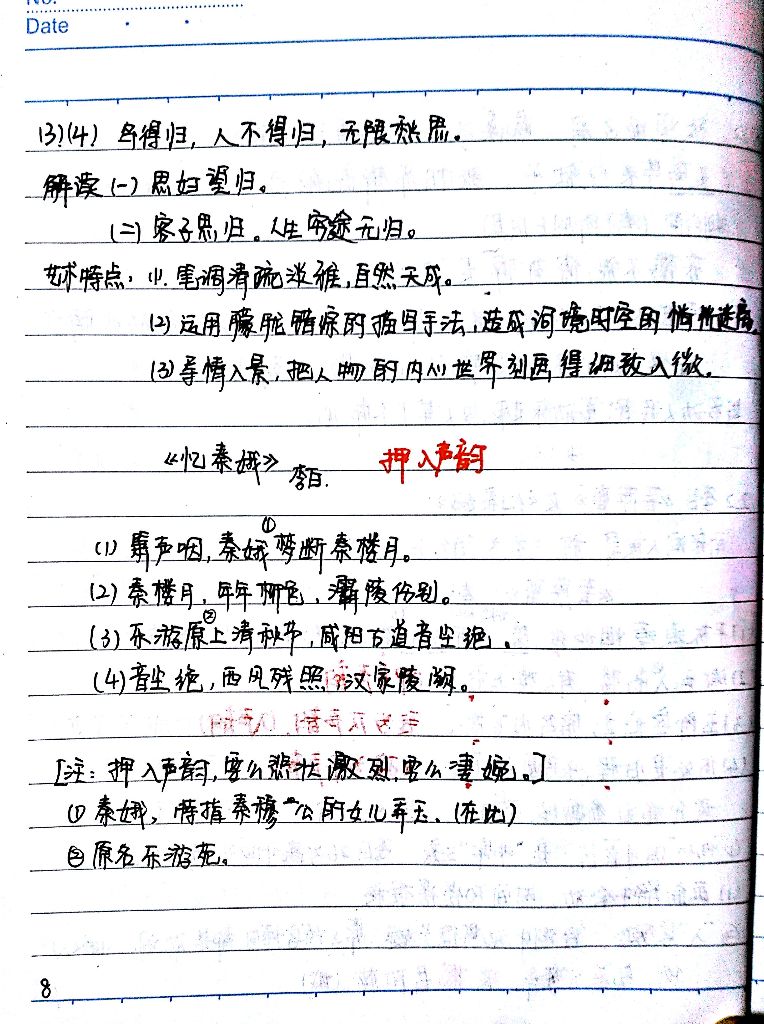 No.
Date
(3)(4) 鸟得归，人不得归，无限愁思。
解读(一) 思妇望归。
(二) 客子思归。人生穷途无归。
艺术特点：(1). 笔调清疏淡雅，自然天成。
(2) 运用朦胧暗综的描写手法，造成词境时空的
(3) 导情入景，把人物的内心世界刻画得细致入微。
《忆秦娥》 李白. 押入声韵
(1) 箫声咽，秦娥①梦断秦楼月。
(2) 秦楼月，年年柳色，灞陵伤别。
(3) 乐游原②上清秋节，咸阳古道音尘绝。
(4) 音尘绝，西风残照，汉家陵阙。
[注：押入声韵，要么悲壮激烈要么凄婉。]
① 秦娥，特指秦穆公的女儿弄玉。(在此)
② 原名乐游苑。
8